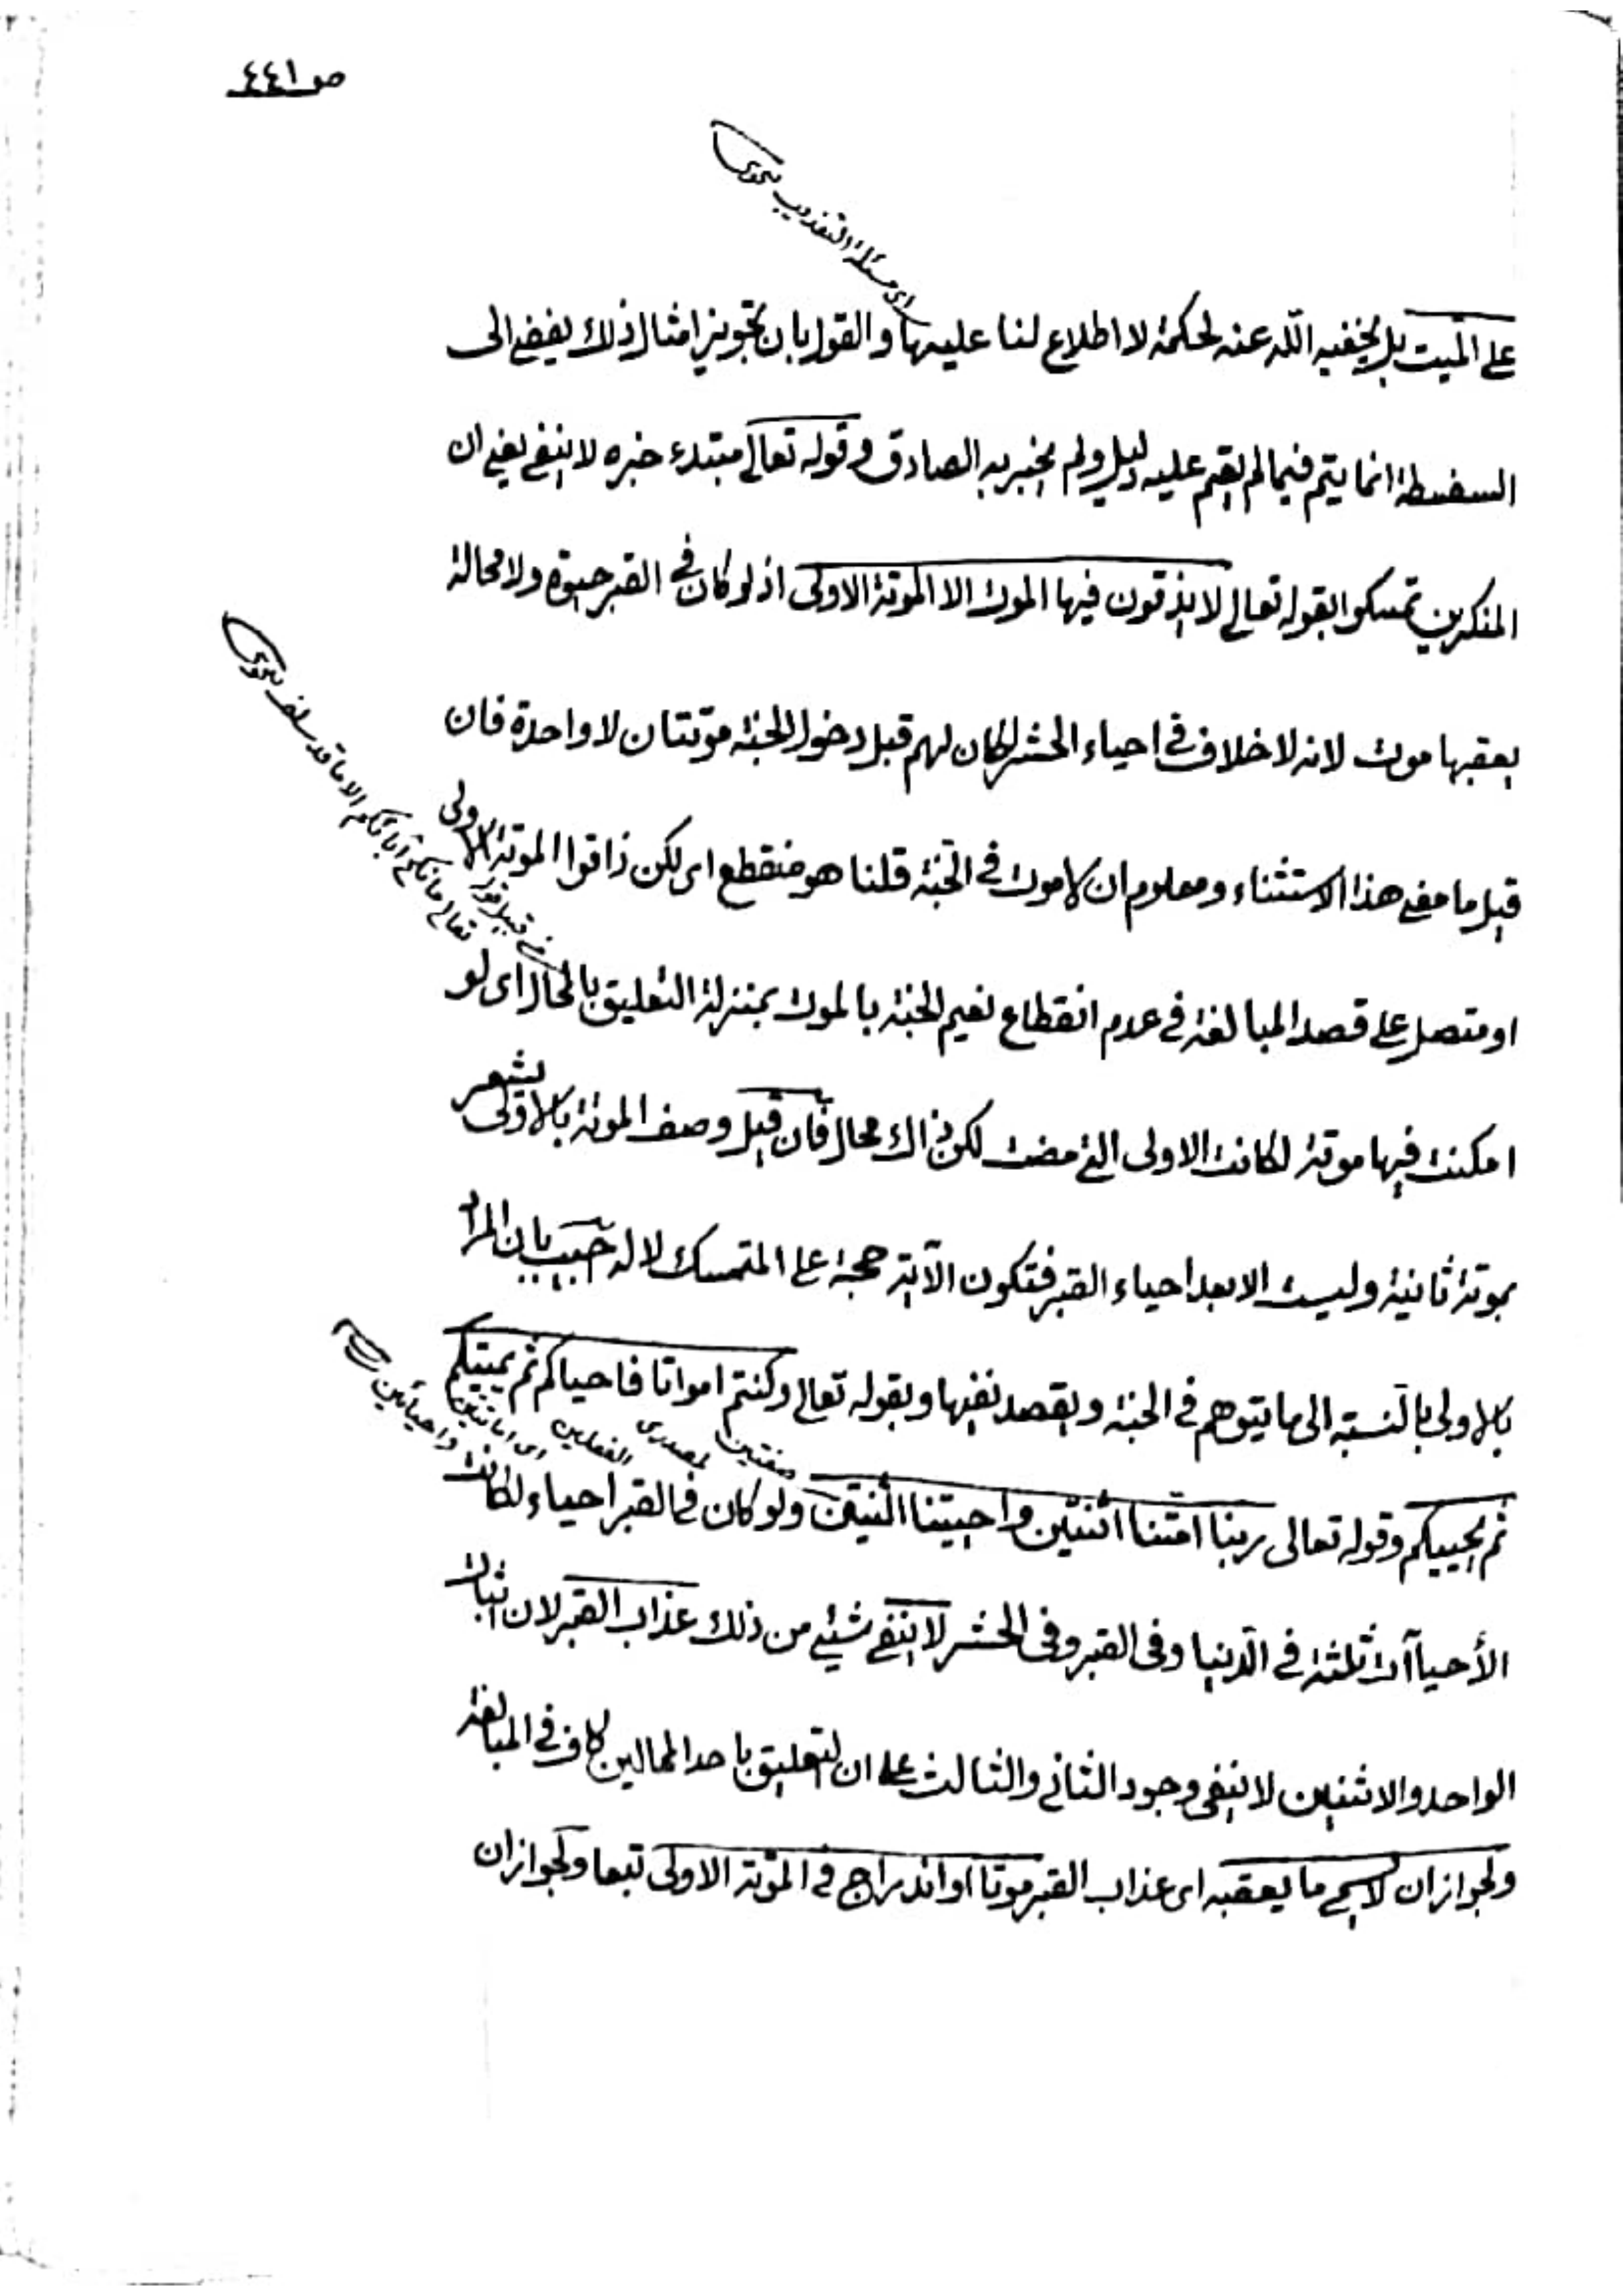 ص ٤٤١
اى مسئلة التعذيب نحوى
على الميت بل يخفيه الله عنه لحكمة لا اطلاع لنا عليها والقول بان تجويز امثال ذلك يفضى الى
السفسطة انما يتم فيما لم يقم عليه دليل ولم يخبر به الصادق وقوله تعالى مبتدء خبره لا ينفى يعنى ان
المنكرين تمسكوا بقوله تعالى لا يذقون فيها الموت الا الموتة الاولى اذ لو كان فى القبر حيوة ولا محالة
يعقبها موت لانه لا خلاف فى احياء الحشر لكان لهم قبل دخول الجنة موتتان لا واحدة فان
قيل ما معنى هذا الاستثناء ومعلوم ان لا موت فى الجنة قلنا هو منقطع اى لكن ذاقوا الموتة الاولى
من قبيل قوله تعالى ما نكح آباؤكم الا ما قد سلف نحوى
او متصل على قصد المبالغة فى عدم انقطاع نعيم الجنة بالموت بمنزلة التعليق بالمحال اى لو
امكنت فيها موتة لكانت الاولى التى مضت لكن ذاك محال فان قيل وصف الموتة بالاولى يشعر
بموتة ثانية وليست الا بعد احياء القبر فتكون الآية حجة على المتمسك لا له اجيب بان المراد
بالاولى بالنسبة الى ما يتوهم فى الجنة ويقصد نفيها وبقوله تعالى وكنتم امواتا فاحياكم ثم يميتكم
صفتين لمصدرى الفعلين اى اماتتين واحيائين
ثم يحييكم وقوله تعالى ربنا امتنا اثنتين واحييتنا اثنتين ولو كان فى القبر احياء لكانت
الأحياآت ثلثة فى الدنيا وفى القبر وفى الحشر لا ينفى شيئ من ذلك عذاب القبر لان اثبات
الواحد والاثنين لا ينفى وجود الثانى والثالث على ان التعليق باحد المحالين كاف فى المبالغة
ولجواز ان لا يسمى ما يعقبه اى عذاب القبر موتا او اندراج فى الموتة الاولى تبعا ولجواز ان